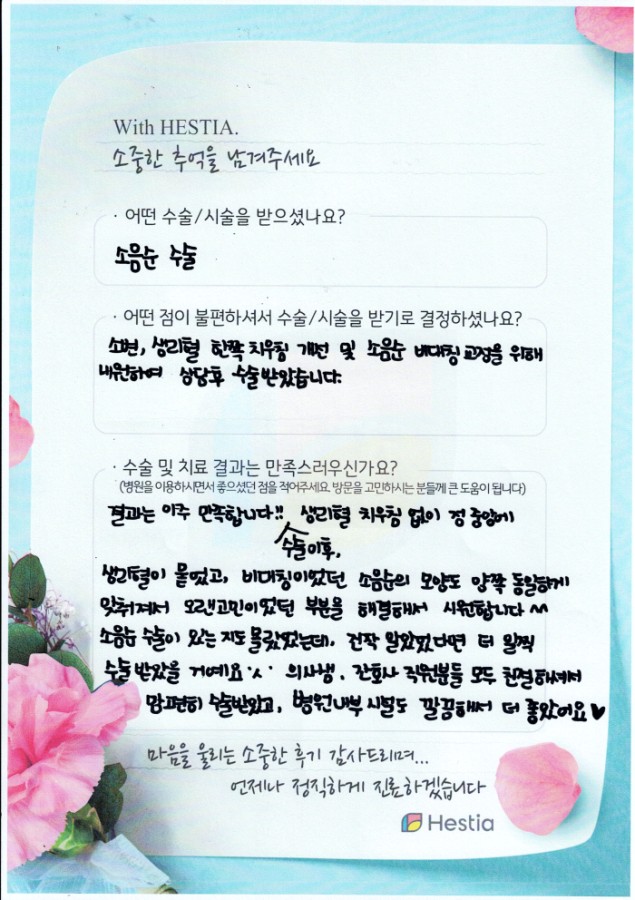 With HESTIA.
소중한 추억을 남겨주세요
· 어떤 수술/시술을 받으셨나요?
소음순 수술
· 어떤 점이 불편하셔서 수술/시술을 받기로 결정하셨나요?
소변, 생리혈 한쪽 치우침 개선 및 소음순 비대칭 교정을 위해
내원하여 상담후 수술받았습니다.
· 수술 및 치료 결과는 만족스러우신가요?
(병원을 이용하시면서 좋으셨던 점을 적어주세요. 방문을 고민하시는 분들께 큰 도움이 됩니다)
결과는 아주 만족합니다!! 생리혈 치우침 없이 정 중앙에
수술이후,
생리혈이 묻었고, 비대칭이었던 소음순의 모양도 양쪽 동일하게
맞춰져서 오랜고민이었던 부분을 해결해서 시원합니다 ^^
소음순 수술이 있는지도 몰랐었는데, 진작 알았었다면 더 일찍
수술받았을 거예요 ·ㅅ· 의사쌤, 간호사 직원분들 모두 친절하셔서
맘편히 수술받았고, 병원내부 시설도 깔끔해서 더 좋았어요 ♥
마음을 울리는 소중한 후기 감사드리며...
언제나 정직하게 진료하겠습니다
Hestia